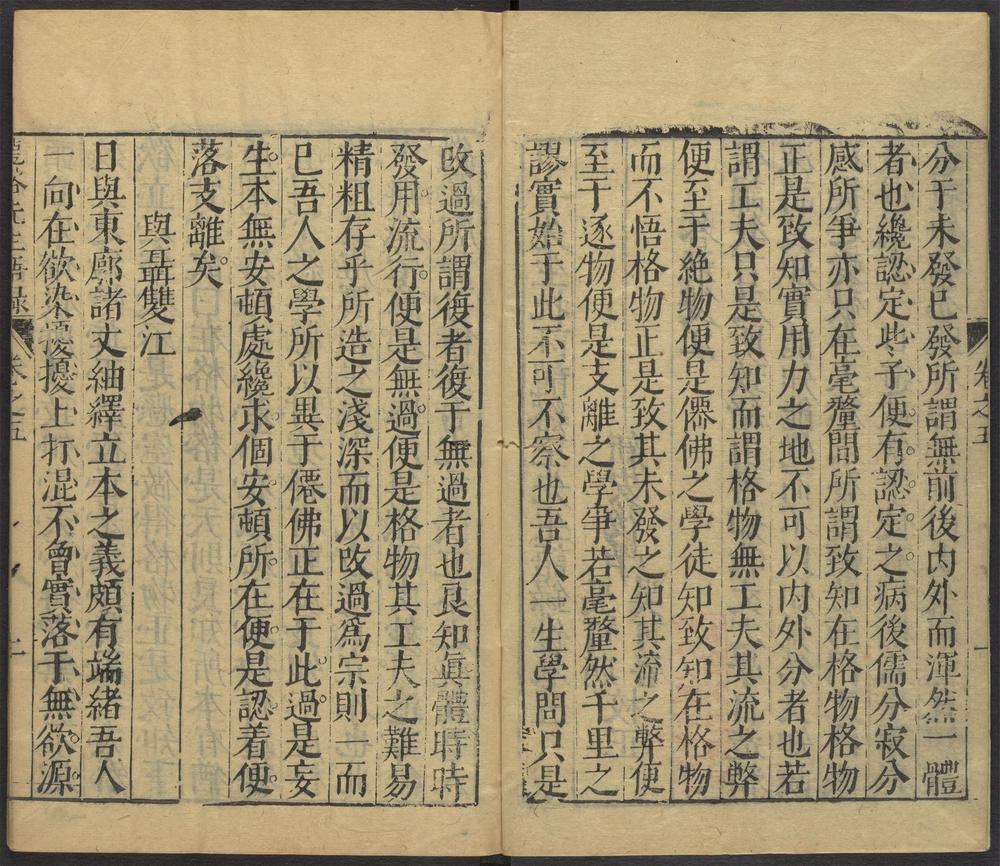 分于未發已發所謂無前後内外而渾然一體
者也纔認定些子便有認定之病後儒分寂分
感所爭亦只在毫釐間所謂致知在格物格物
正是致知實用力之地不可以内外分者也若
謂工夫只是致知而謂格物無工夫其流之弊
便至于絶物便是僊佛之學徒知致知在格物
而不悟格物正是致其未發之知其流之弊便
至于逐物便是支離之學爭若毫釐然千里之
謬實始于此不可不察也吾人一生學問只是
卷之五
一
改過所謂復者復于無過者也良知眞體時時
發用流行便是無過便是格物其工夫之難易
精粗存乎所造之淺深而以改過爲宗則一而
已吾人之學所以異于僊佛正在于此過是妄
生本無安頓處纔求個安頓所在便是認着便
落支離矣
與聶雙江
日與東廓諸丈紬繹立本之義頗有端緒吾人
一向在欲染擾擾上打混不曾實落于無欲源
龍谿先生語録
卷之五